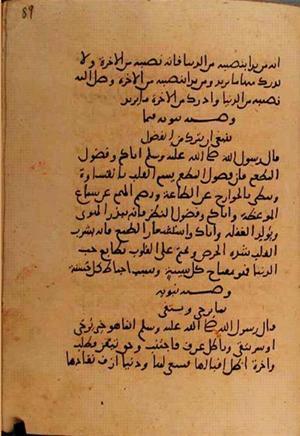 انه من يرد بنصيبه من الدنيا فاته نصيبه من الاخرة ولا
يدرك منها ما يريد ومن يرد بنصيبه من الاخرة وصل اليه
نصيبه من الدنيا وادرك من الاخرة ما يريد
وصية نبوية فيما
ينبغي ان يترك من الفضول
قال رسول الله صلى الله عليه وسلم اياكم وفضول
المطعم فان فضول المطعم يسم القلب بالقسوة
ويبطي بالجوارح عن الطاعة ويصم الهمم عن سماع
الموعظة واياكم وفضول النظر فانه يبذر الهوى
ويولد الغفلة واياكم واستشعار الطمع فانه يشرب
القلب شدة الحرص ويختم على القلوب بطابع حب
الدنيا فهو مفتاح كل سيئة وسبب احباط كل حسنة
وصية نبوية
بما يرجى ويتقى
قال رسول الله صلى الله عليه وسلم انما هو خير يرجى
او شر يتقى وباطل عرف فاجتنب وحق تيقن فطلب
واخرة اظل اقبالها فسعي لها ودنيا ازف نفادها